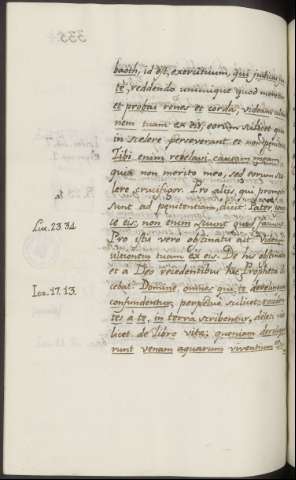 baoth, id est, exercituum, qui judicas ju
te, reddendo unicuique quod meretur
et probas renes et corda, videam ultio
nem tuam ex eis, eorum scilicet qui
in scelere perseverant, et non poenitent.
Tibi enim revelavi causam meam,
qua non merito meo, sed eorum sce
lere, crucifigor. Pro aliis, qui promoti
sunt ad penitentiam, dicit: Pater, ignos
Luc. 23. 34. ce eis, non enim sciunt quid faciunt.
Pro istis vero obstinatis ait: Videam
ultionem tuam ex eis. De his obstinatis
et a Deo recedentibus hic Propheta di
Ier. 17. 13. cebat: Domine, omnes qui te derelinquunt
confundentur, perpetuo scilicet; receden
tes à te, in terra scribentur, deleti sci
licet de libro vitae, quoniam dereliqu
runt venam aquarum viventium